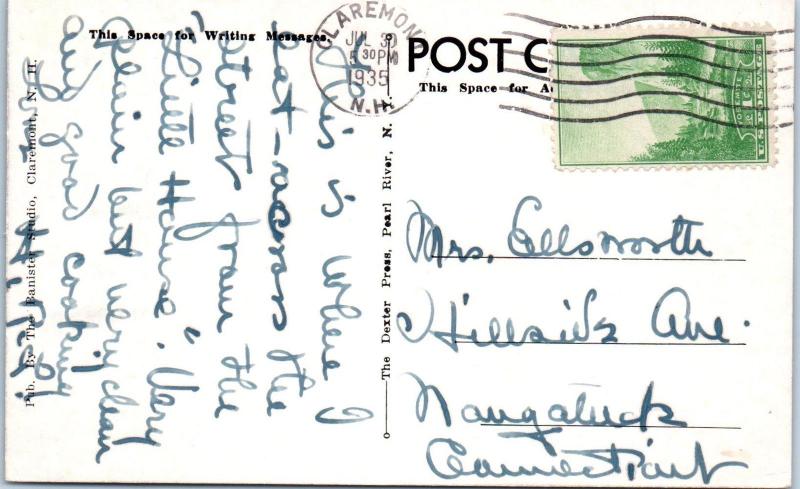 This Space for Writing Messages
This is where I
eat - across the
street from the
"Little House". Very
plain but very clean
and good cooking
Pub. By The Banister Studio, Claremont, N. H.
o—The Dexter Press, Pearl River, N. Y.—o
CLAREMONT
JUL 30
5 30 PM
1935
N.H.
POST C
This Space for A
YOSEMITE
U.S. POSTAGE
Mrs. Ellsworth
Hillside Ave.
Naugatuck
Connecticut